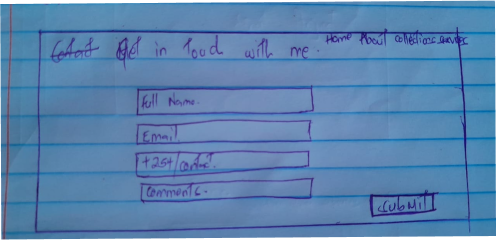 Get in touch with me.
Home About collections services
Full Name.
Email
+254/contact.
Comments.
SUBMIT